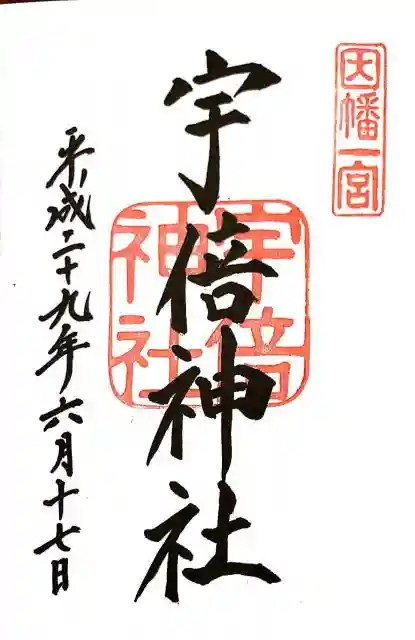 因幡一宮
宇倍神社
宇倍
神社
平成二十九年六月十七日